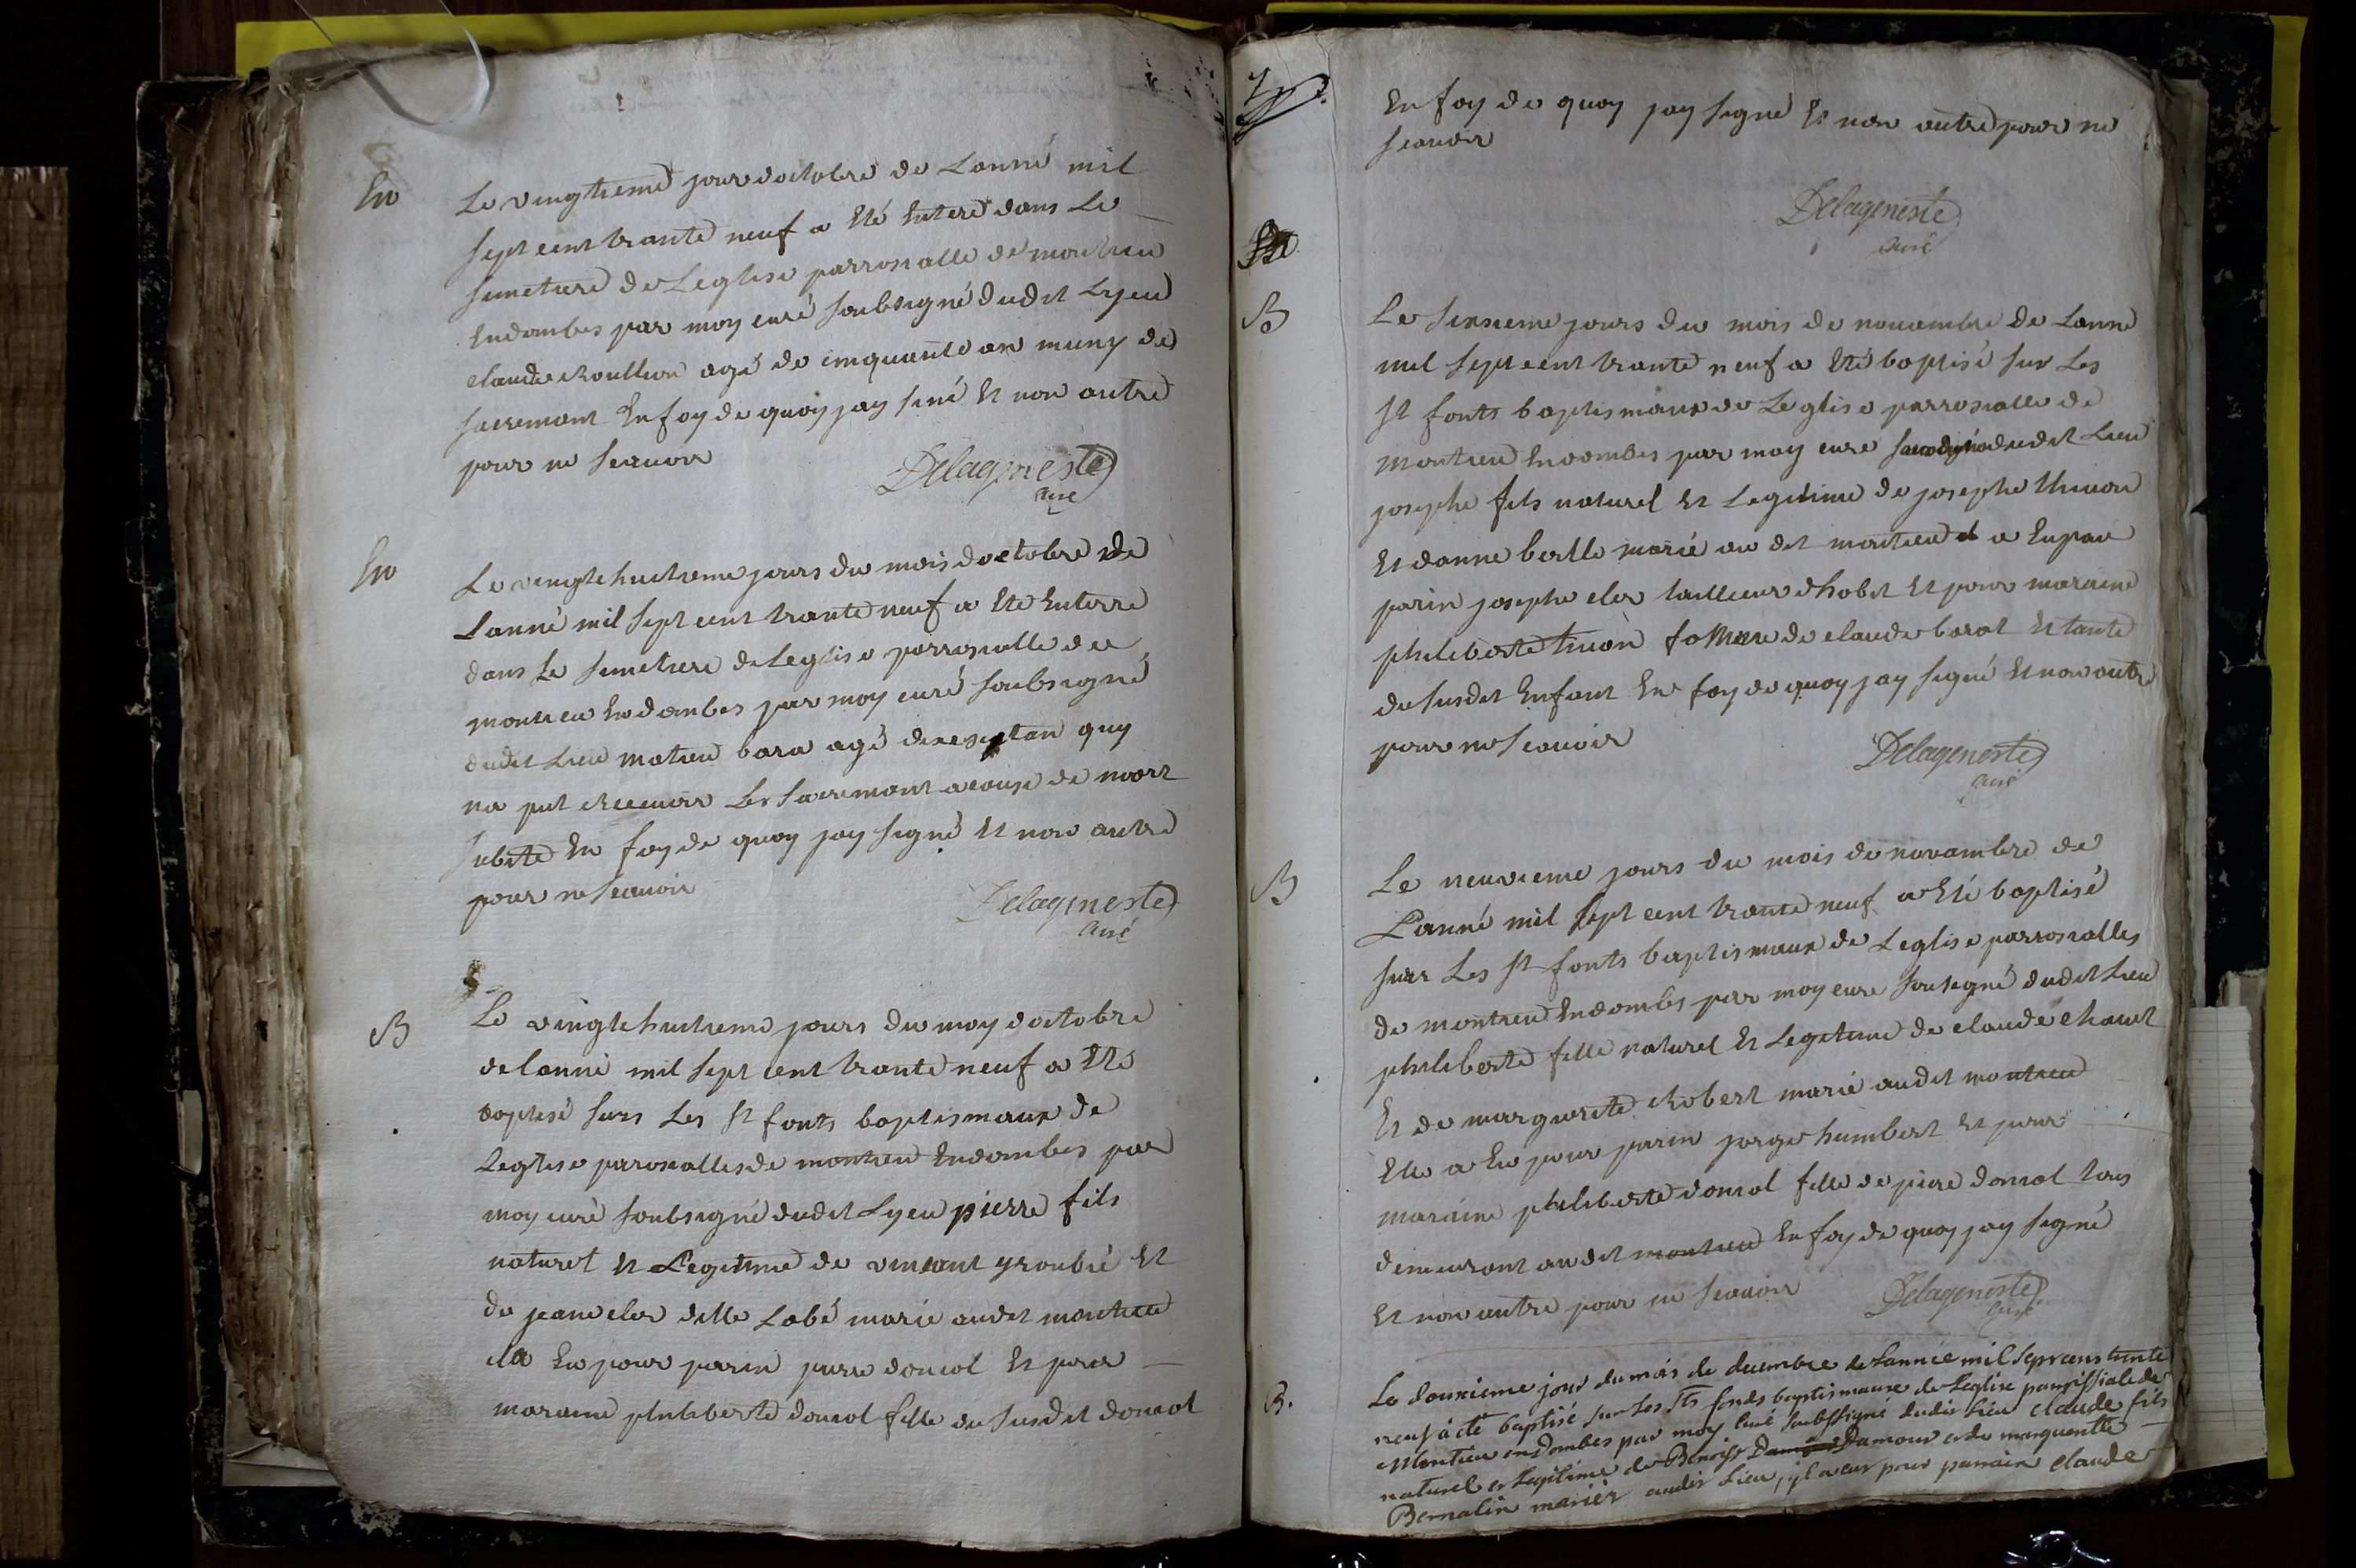 En
Le vingtieme jour doctobre de Lanné mil
sept cent trante neuf a été enteré dans Le
simetiere de Leglise parrosialle de montieu
Endombes par moy curé soubsigné dudit Lyeu
claude Roullion agé de cinquante an muny de
sacremant En foy de quoy jay siné et non autre
pour ne scauoir
Delageneste
curé
En
Le vingtehuitieme jours du mois doctobre de
Lanné mil sept cent trante neuf a ete Enterré
dans Le simetiere de Leglise parrosialle de
montieu En dombes par moy curé soubsigné
dudit Lieu matieu bara agé de
na put Receuoir Les sacremant a cause de mort
subite En foy de quoy jay signé et non autre
pour ne scauoir
Delageneste
curé
B
Le vingtehuitieme jours du moy doctobre
de lanné mil sept cent trante neuf a été
baptisé surs Les st fonts baptismaux de
Leglise parosialles de montieu Endombes par
moy curé soubsigné dudit Lyeu pierre fils
naturel et Legitime de vincent groubié et
de jeane cler ditte Labé marié audit montieu
ila Eu pour parin piere doncol et pour
maraine philiberte doncol fille du susdit doncol
En foy de quoy jay signé et non autre pour ne
scauoir
Delageneste
curé
B
Le sixsieme jours du mois de nouembre de Lanné
mil sept cent trante neuf a été baptisé sur Les
st fonts baptismaux de Leglise parrosialle de
montieu Endombes par moy curé dudit Lieu
josephe fils naturel et Legitime de josephe thiuon
et danne berlle marié au dit montieu a Eu pour
parin josephe cler tailleur dhabit et pour maraine
philiberte tiuon famme de claude barat et tante
du susdit Enfant En foy de quoy jay signé et non autre
pour ne scauoir
Delageneste
curé
B
Le neuvieme jours du mois de novambre de
Lanné mil sept cent trante neuf a été baptisé
surs Les st fonts baptismaux de Leglise parrosialles
de montieu Endombes par moy curé sousigné dudit Lieu
philiberte fille naturel et Legitime de claude chanel
et de margurite Robert marié audit montieu
Elle a Eu pour parin jorge humbert et pour
maraine philiberte doncol fille de piere doncol tous
demeurant audit montieu En foy de quoy jay signé
et non autre pour ne scauoir
Delageneste
curé
B.
Le douxieme jour du mois de decembre de Lannée mil sept cens trente
neuf à été baptisé sur Les Sts fonds baptismaux de Leglise paroissiale de
Montieu en Dombes par moy curé soubssigné dudit Lieu claude fils
naturel et Legitime de Benoist Damour et de margueritte
Bernalin mariés audit Lieu, il a eu pour parrain claude